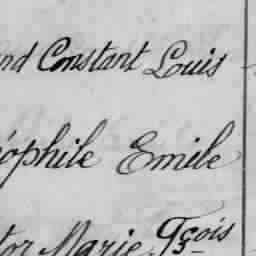 nd Constant Louis
éophile Emile
tor Marie Fçois